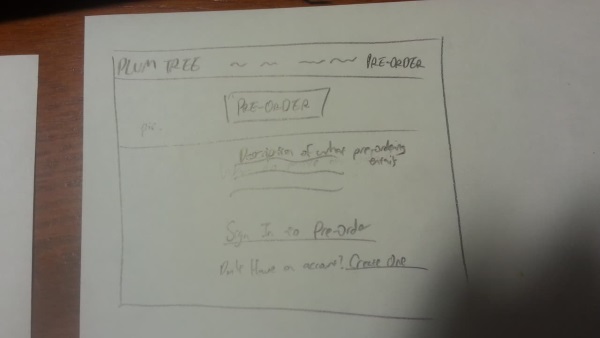 PLUM TREE PRE-ORDER
PRE-ORDER
pic.
Description of what pre-ordering
Sign In to Pre-Order
Don't Have an account? Create One